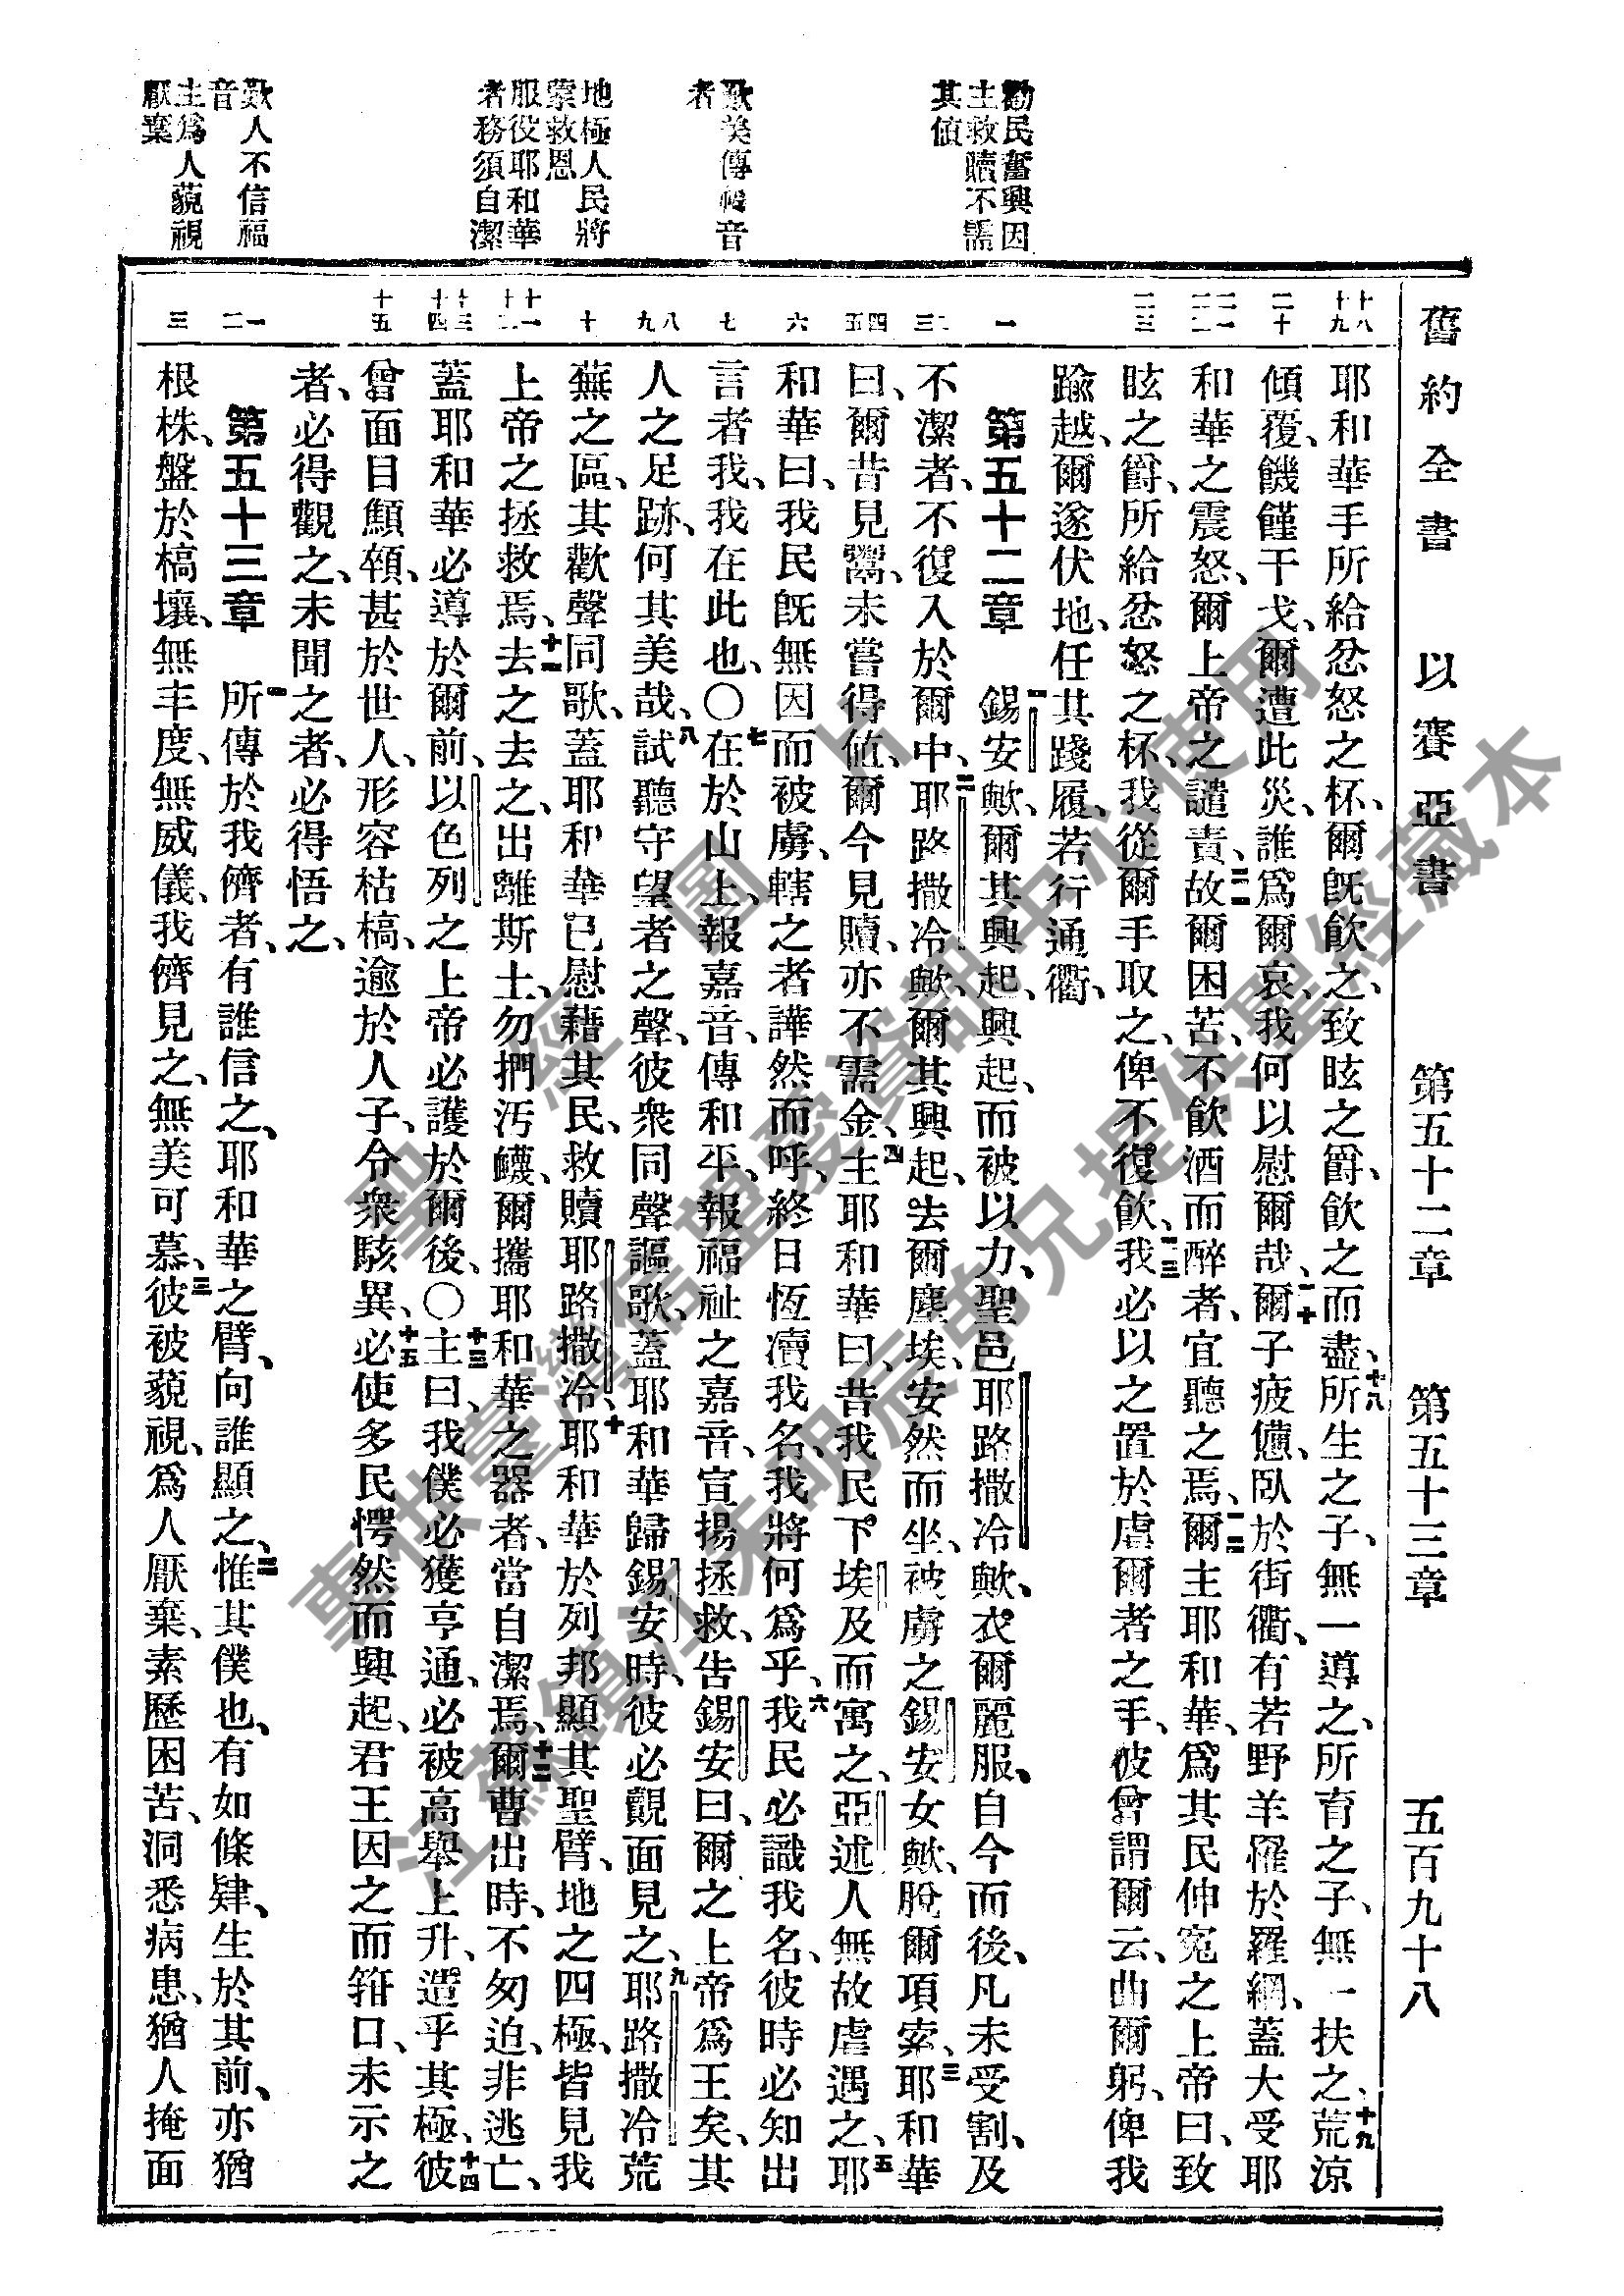 舊約全書 以賽亞書 第五十二章 第五十三章 五百九十八
勸民奮興因
主救贖不需
其值
歎美傳福音
者
地極人民將
蒙救恩
服役耶和華
者務須自潔
歎人不信福
音
主爲人藐視
厭棄
十八 十九
二十
二一 二二
二三
一
二 三
四 五
六
七
八 九
十
十一 十二
十三 十四
十五
一 二
三
耶和華手所給忿怒之杯、爾旣飮之、致眩之爵、飮之而盡、十八所生之子、無一導之、所育之子、無一扶之、十九荒涼
傾覆、饑饉干戈、爾遭此災、誰爲爾哀、我何以慰爾哉、二十爾子疲憊、臥於街衢、有若野羊罹於羅網、蓋大受耶
和華之震怒、爾上帝之譴責、二一故爾困苦、不飮酒而醉者、宜聽之焉、二二爾主耶和華、爲其民伸寃之上帝曰、致
眩之爵、所給忿怒之杯、我從爾手取之、俾不復飮、二三我必以之置於虐爾者之手、彼曾謂爾云、曲爾躬、俾我
踰越、爾遂伏地、任其踐履、若行通衢、
第五十二章 一錫安歟、爾其興起、興起、而被以力、聖邑耶路撒冷歟、衣爾麗服、自今而後、凡未受割、及
不潔者、不復入於爾中、二耶路撒冷歟、爾其興起、去爾塵埃、安然而坐、被虜之錫安女歟、脫爾項索、三耶和華
曰、爾昔見鬻、未嘗得値、爾今見贖、亦不需金、四主耶和華曰、昔我民下埃及而寓之、亞述人無故虐遇之、五耶
和華曰、我民旣無因而被虜、轄之者譁然而呼、終日恆瀆我名、我將何爲乎、六我民必識我名、彼時必知出
言者我、我在此也、〇七在於山上、報嘉音、傳和平、報福祉之嘉音、宣揚拯救、告錫安曰、爾之上帝爲王矣、其
人之足跡、何其美哉、八試聽守望者之聲、彼衆同聲謳歌、蓋耶和華歸錫安時、彼必覿面見之、九耶路撒冷荒
蕪之區、其歡聲同歌、蓋耶和華已慰藉其民、救贖耶路撒冷、十耶和華於列邦顯其聖臂、地之四極、皆見我
上帝之拯救焉、十一去之去之、出離斯土、勿捫汚衊、爾攜耶和華之器者、當自潔焉、十二爾曹出時、不匆迫、非逃亡、
蓋耶和華必導於爾前、以色列之上帝必護於爾後、〇十三主曰、我僕必獲亨通、必被高舉上升、造乎其極、十四彼
曾面目顦顇、甚於世人、形容枯槁、逾於人子、令衆駭異、十五必使多民愕然而興起、君王因之而箝口、未示之
者、必得觀之、未聞之者、必得悟之、
第五十三章 一所傳於我儕者、有誰信之、耶和華之臂、向誰顯之、二惟其僕也、有如條肄、生於其前、亦猶
根株、盤於槁壤、無丰度、無威儀、我儕見之、無美可慕、三彼被藐視、爲人厭棄、素歷困苦、洞悉病患、猶人掩面
聖經圖片
專供臺灣信望愛資訊中心使用
江蘇鎮江朱明辰弟兄提供聖經藏本